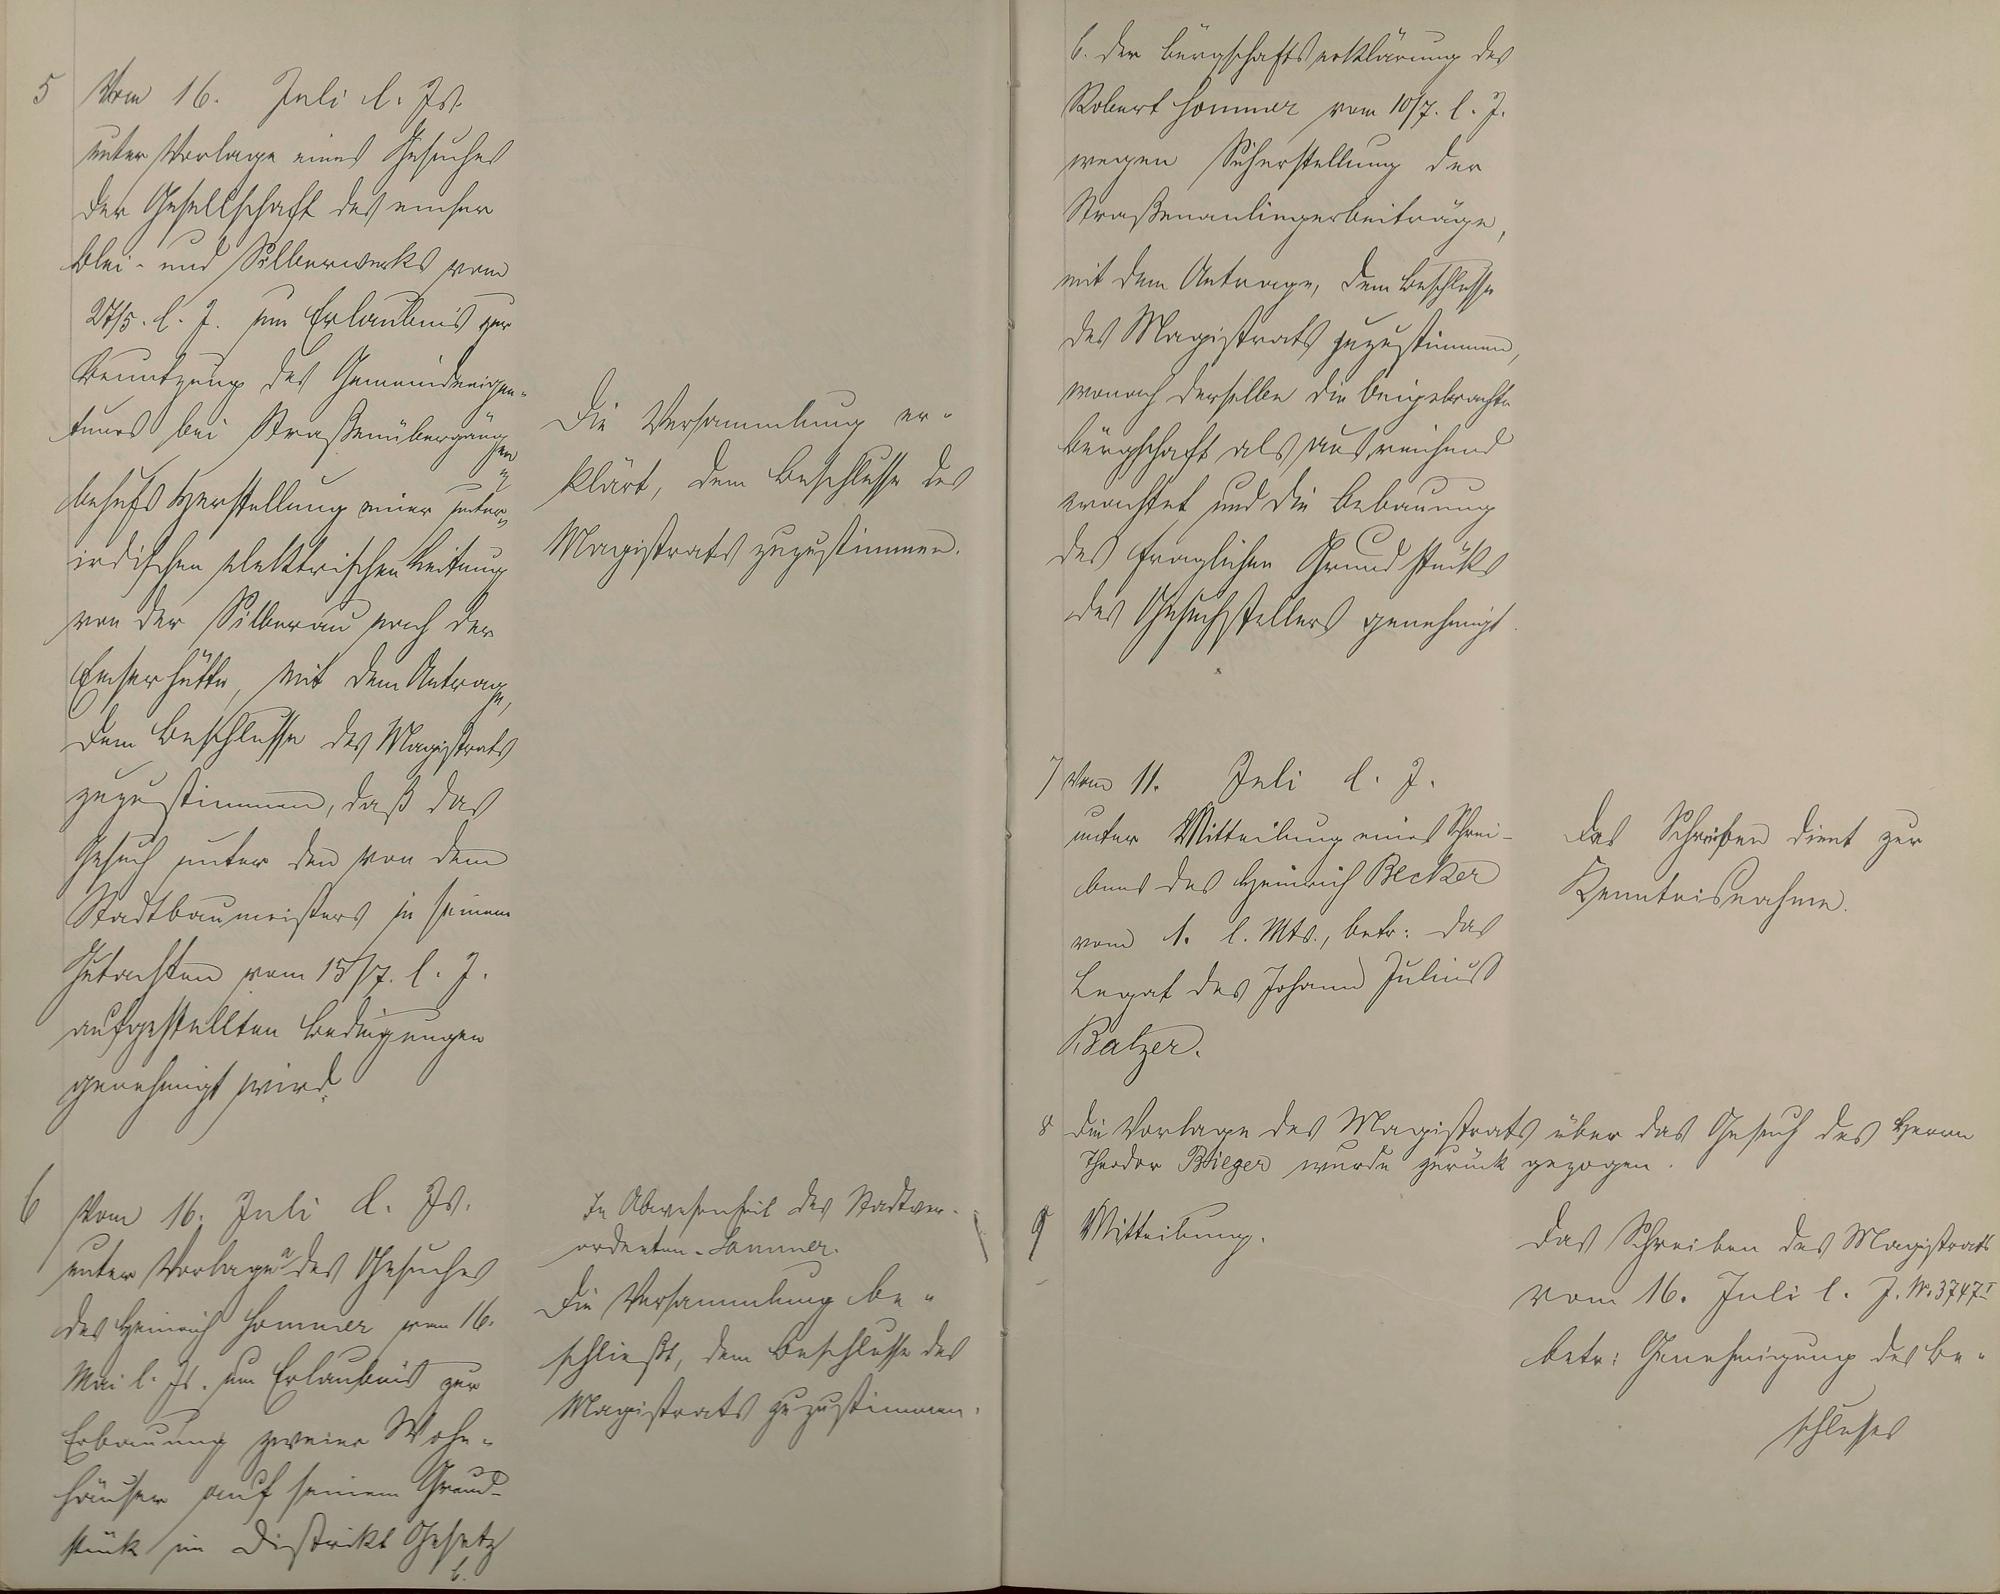 5 Vom 16. Juli l. Js.
unter Vorlage eines Gesuches
der Gesellschaft des emser
Blei- und Silberwerks vom
27/5. l. J. um Erlaubnis zur
Benutzung des Gemeindeeigen-
tums bei Straßenübergängen
behufs Herstellung einer unter-
irdischen elektrischen Leitung
von der Silberau nach der
Emserhütte, mit dem Antrage,
dem Beschlusse des Magistrats
zuzustimmen, daß das
Gesuch unter den von dem
Stadtbaumeisters in seinem
Gutachten vom 15/7. l. J.
aufgestellten Bedingungen
genehmigt wird.
Die Versammlung er-
klärt, dem Beschlusse des
Magistrats zuzustimmen.
6 Vom 16. Juli l. Js.
unter Vorlage a des Gesuches
des Heinrich Sommer vom 16.
Mai l. Js. um Erlaubnis zur
Erbauung zweier Wohn-
häuser auf seinem Grund-
stück im Distrikt Gesetz
b.
In Abwesenheit des Stadtver-
ordneten Sommer.
Die Versammlung be-
schließt, dem Beschlusse des
Magistrats zuzustimmen.
b. der Bürgschaftserklärung des
Robert Sommer vom 10/7. l. J.
wegen Sicherstellung der
Straßenanliegerbeiträge,
mit dem Antrage, dem Beschlusse
des Magistrats zuzustimmen,
wonach derselbe die beigebrachte
Bürgschaft als ausreichend
erachtet und die Bebauung
des fraglichen Grundstücks
des Gesuchstellers genehmigt.
7 Vom 11. Juli l. J.
unter Mitteilung eines Schrei-
bens des Heinrich Becker
vom 1. l. Mts., betr: das
Legat des Johann Julius
Balzer.
Das Schreiben dient zur
Kenntnisnahme.
8 Die Vorlage des Magistrats über das Gesuch des Herrn
Theodor Bieger wurde zurück gezogen.
9 Mitteilung.
Das Schreiben des Magistrats
vom 16. Juli l. J. No. 3747 I
betr: Genehmigung des Be-
schlusses